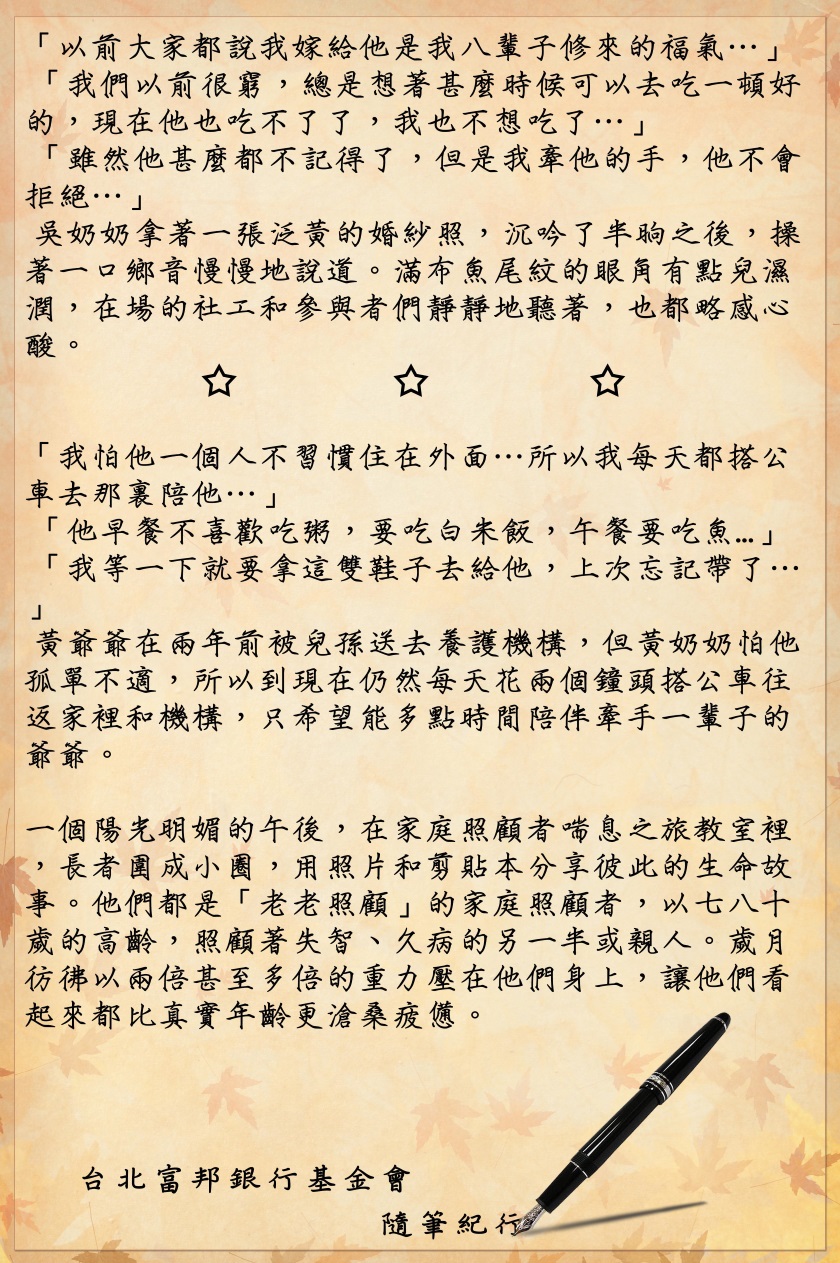 「以前大家都說我嫁給他是我八輩子修來的福氣…」
「我們以前很窮，總是想著甚麼時候可以去吃一頓好
的，現在他也吃不了了，我也不想吃了…」
「雖然他甚麼都不記得了，但是我牽他的手，他不會
拒絕…」
吳奶奶拿著一張泛黃的婚紗照，沉吟了半晌之後，操
著一口鄉音慢慢地說道。滿布魚尾紋的眼角有點兒濕
潤，在場的社工和參與者們靜靜地聽著，也都略感心
酸。
「我怕他一個人不習慣住在外面…所以我每天都搭公
車去那裏陪他…」
「他早餐不喜歡吃粥，要吃白米飯，午餐要吃魚…」
「我等一下就要拿這雙鞋子去給他，上次忘記帶了…
」
黃爺爺在兩年前被兒孫送去養護機構，但黃奶奶怕他
孤單不適，所以到現在仍然每天花兩個鐘頭搭公車往
返家裡和機構，只希望能多點時間陪伴牽手一輩子的
爺爺。
一個陽光明媚的午後，在家庭照顧者喘息之旅教室裡
，長者圍成小圈，用照片和剪貼本分享彼此的生命故
事。他們都是「老老照顧」的家庭照顧者，以七八十
歲的高齡，照顧著失智、久病的另一半或親人。歲月
彷彿以兩倍甚至多倍的重力壓在他們身上，讓他們看
起來都比真實年齡更滄桑疲憊。
台北富邦銀行基金會
隨筆紀行